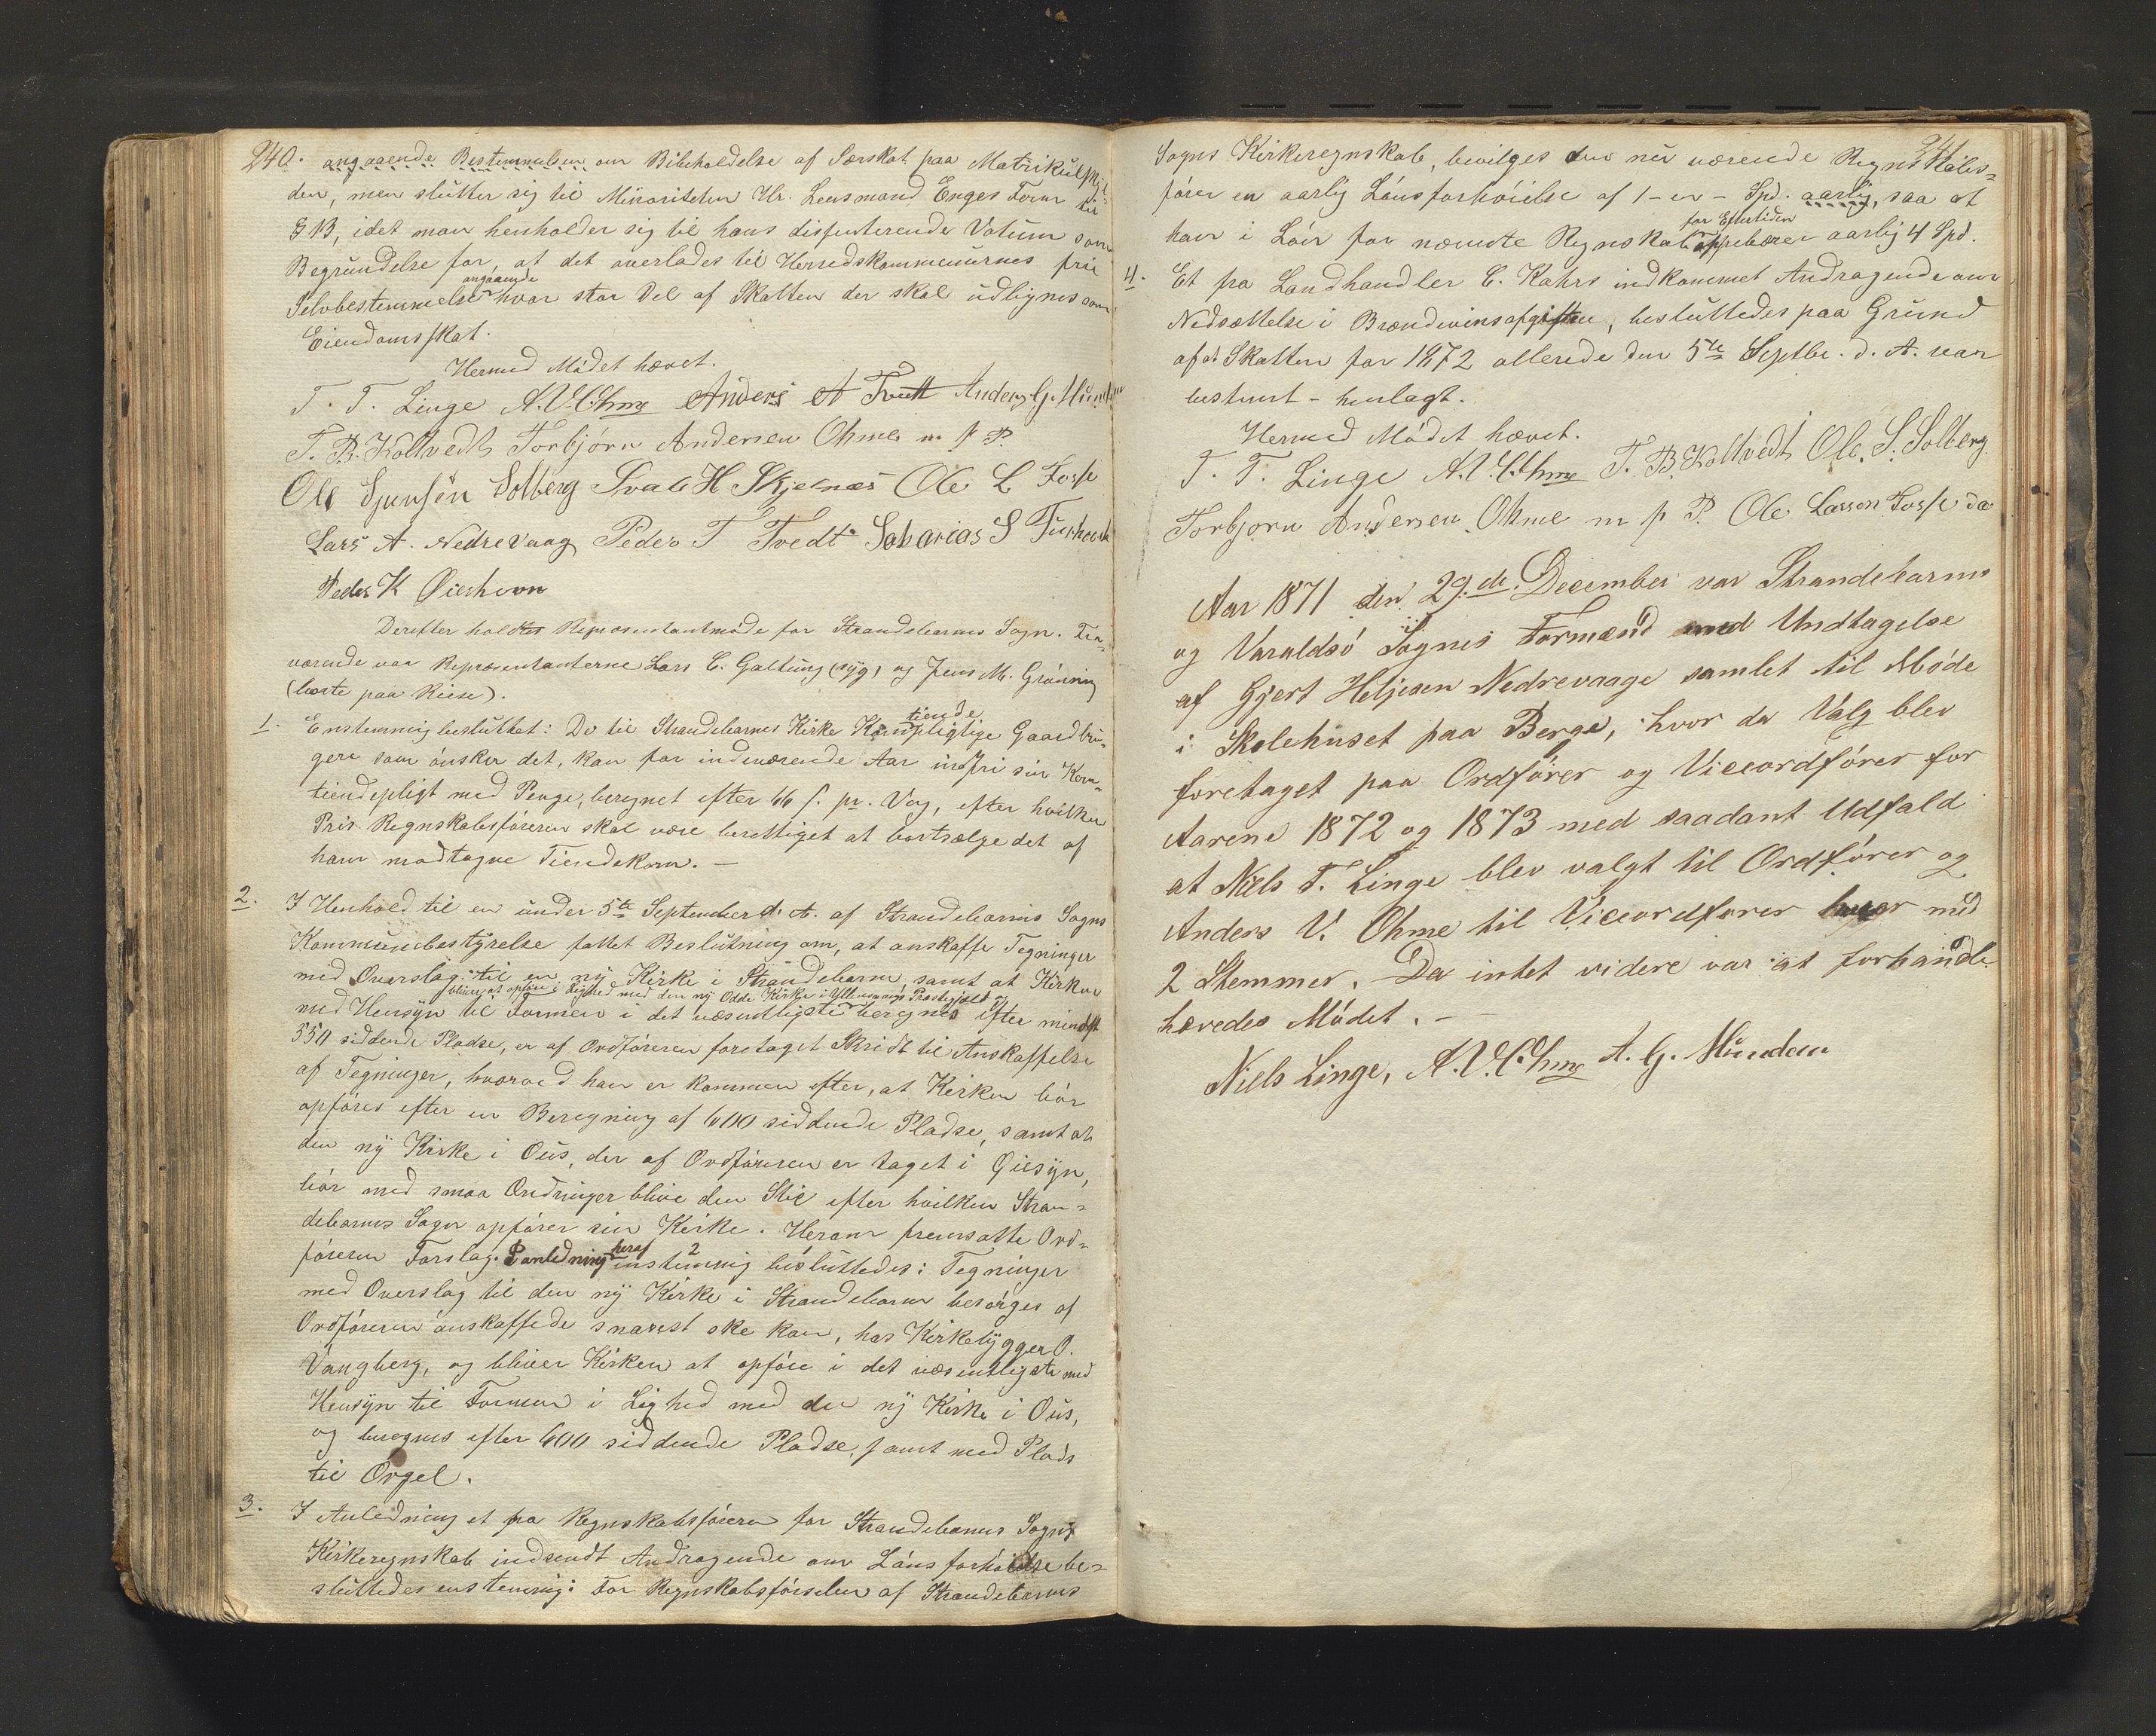 240. angaaende Bestemmelsen om Bibeholdelse af Særskat paa Matrikulskyl-
den, men slutter sig til Minoriteten Hr. Lensmand Enges Form til
§ 13, idet man henholder sig til hans dissenterende Votum som
Begrundelse for, at det overlades til Herredskommunernes frie
angaaende
Selvbestemmelse hvor stor Del af Skatten der skal udlignes som
Eiendomsskat.
Hermed Mødet hævet.
T. T. Linge A.V.Ohme Anders A Tvedt Anders G. Munden
T. B. Koltvedt Torbjørn Andersen Ohme m p P.
Ole Sjursen Solberg Svale H Skjelnæs Ole L Fosse
Lars A. Nedrevaag Peder T Tvedt Sakarias S
Peder K Øierhovn
Derefter holdtes Repræsentantmøde for Strandebarms Sogn. Fra-
værende var Repræsentanterne Lars E. Galtung (syg) og Jens M. Grøning
(borte paa Reise).
1. Enstemmig besluttet: De til Strandebarms Kirke Korntiendepligtige Gaardbru-
gere som ønsker det, kan for indeværende Aar indfri sin Korn-
tiendepligt med Penge, beregnet efter 66 s. pr. Vog, efter hvilken
Pris Regnskabsføreren skal være berettiget at bortsælge det af
ham modtagne Tiendekorn. —
2. I Henhold til en under 5te September d. A. af Strandebarms Sogns
Kommunebestyrelse fattet Beslutning om, at anskaffe Tegninger
med Overslag til en ny Kirke i Strandebarm, samt at Kirken
bliver at opføre i Lighed med den ny Odde Kirke i Ullensvangs Præstegjeld og
med Hensyn til Formen i det væsentligste beregnes efter mindst
550 siddende Pladse, er af Ordføreren foretaget Skridt til Anskaffelse
af Tegninger, hvorved han er kommen efter, at Kirken bør
opføres efter en Beregning af 600 siddende Pladse, samt at
den ny Kirke i Ous, der af Ordføreren er taget i Øiesyn,
bør med smaa Ændringer blive den Stil efter hvilken Stran-
debarms Sogn opfører sin Kirke. Herom fremsatte Ord-
føreren Forslag. I anledning heraf enstemmig besluttedes: Tegninger
med Overslag til den ny Kirke i Strandebarm besørges af
Ordføreren anskaffede snarest ske kan, hos Kirkebygger O.
Vangberg, og bliver Kirken at opføre i det væsentligste med
Hensyn til Formen i Lighed med den ny Kirke i Ous,
og beregnes efter 600 siddende Pladse, samt med Plads
til Orgel.
3. I Anledning et fra Regnskabsføreren for Strandebarms Sogns
Kirkeregnskab indsendt Andragende om Lønsforhøielse be-
sluttedes enstemmig: For Regnskabsførselen af Strandebarms
241
Sogns Kirkeregnskab, bevilges den nu værende Regnskabs-
fører en aarlig Lønsforhøielse af 1 - en - Spd. aarlig, saa at
for Eftertiden
han i Løn for nævnte Regnskab oppebærer aarlig 4 Spd.
4. Et fra Landhandler C. Kahrs indkommet Andragende om
Nedsættelse i Brændevinsafgiften, besluttedes paa Grund
af at Skatten for 1872 allerede den 5te Septbr. d. A. var
bestemt - henlagt.
Hermed Mødet hævet.
T. T. Linge A.V.Ohme T. B. Koltvedt Ole. S. Solberg.
Torbjørn Andersen Ohme m p P. Ole Larson Fosse
Aar 1871 den 29.de December var Strandebarms
og Varaldsø Sognes Formænd med Undtagelse
af Gjert Heljesen Nedrevaage samlet til Møde
i Skolehuset paa Berge, hvor da Valg blev
foretaget paa Ordfører og Viceordfører for
Aarene 1872 og 1873 med saadant Udfald
at Niels T. Linge blev valgt til Ordfører og
Anders V. Ohme til Viceordfører hver med
2 Stemmer. Da intet videre var at forhandle
hævedes Mødet. —
Niels Linge, A.V.Ohme A. G. Munden